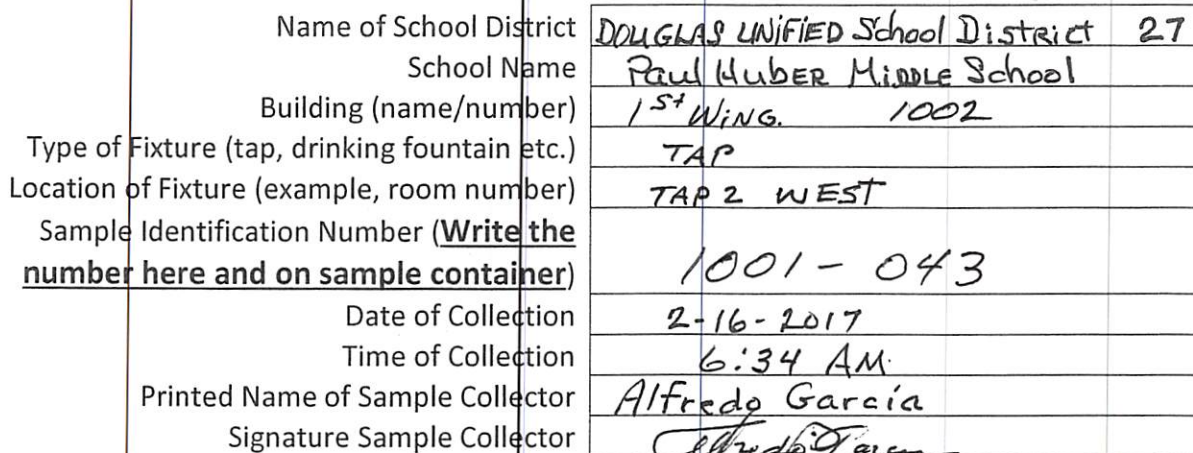 Name of School District DOUGLAS UNiFiED School District 27
School Name Paul Huber Middle School
Building (name/number) 1st WiNG. 1002
Type of Fixture (tap, drinking fountain etc.) TAP
Location of Fixture (example, room number) TAP 2 WEST
Sample Identification Number (Write the
number here and on sample container) 1001 - 043
Date of Collection 2-16-2017
Time of Collection 6:34 AM.
Printed Name of Sample Collector Alfredo Garcia
Signature Sample Collector Alfredo Garcia